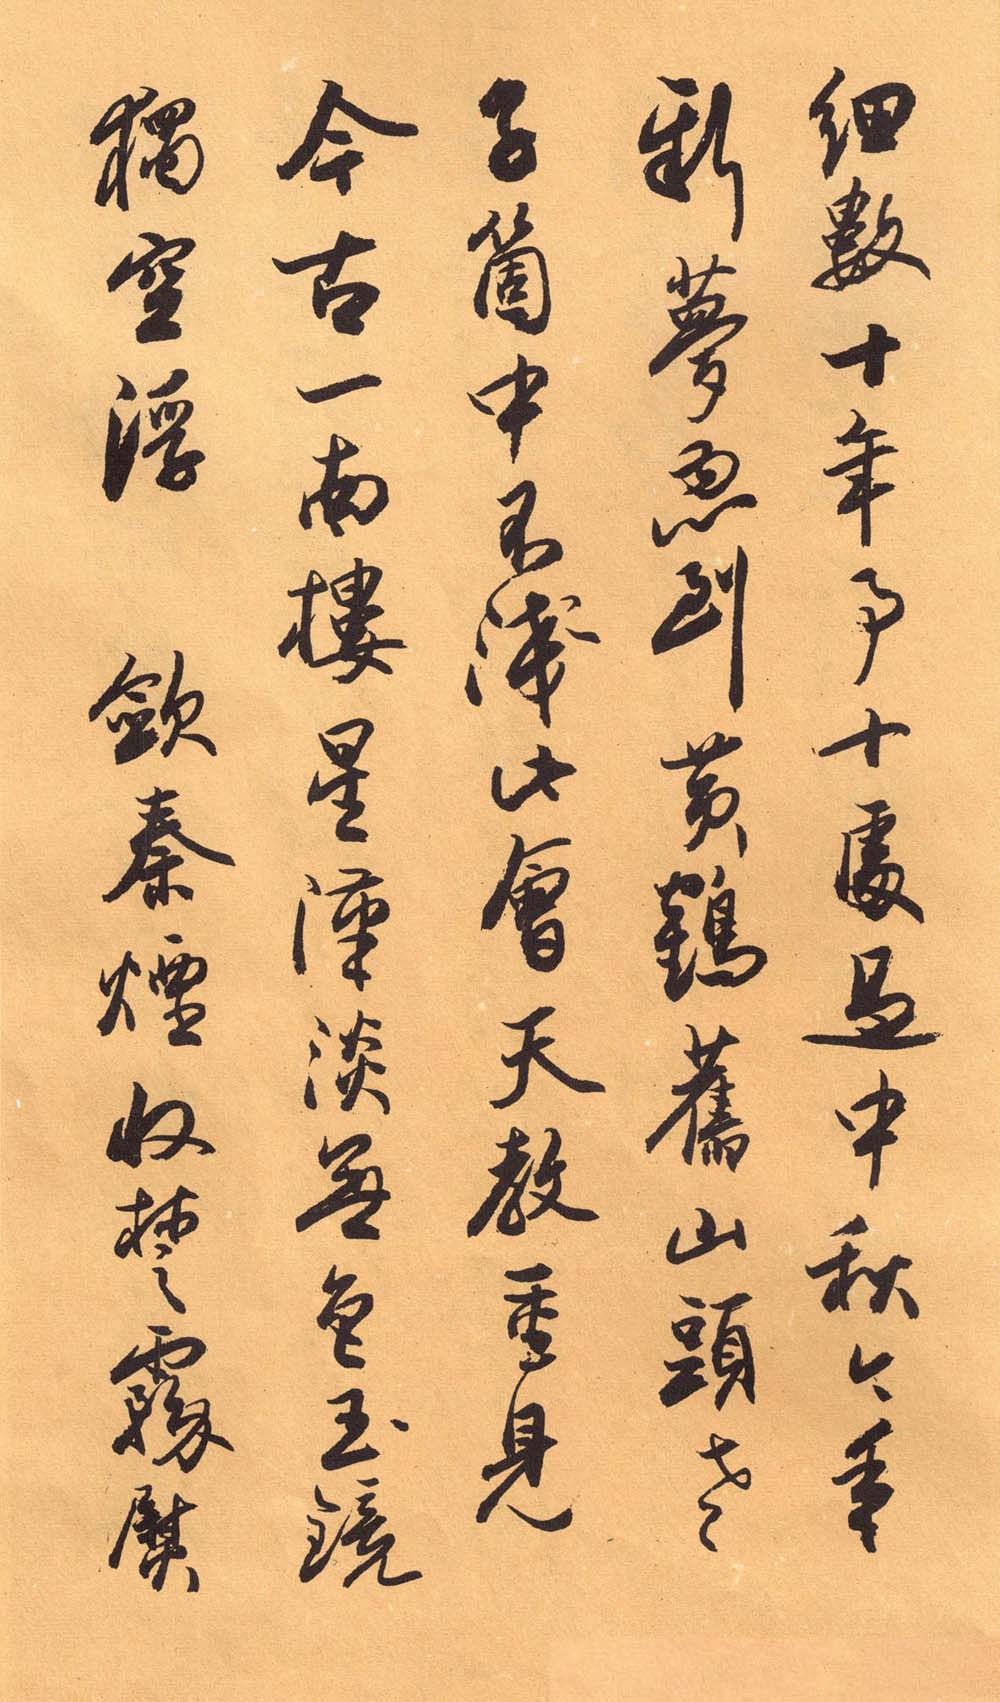 細數十年事十處過中秋今年
新夢忽到黃鶴舊山頭老
子箇中不淺此會天教重見
今古一南樓星漢淡無色玉鏡
獨空浮 斂秦煙收楚霧熨